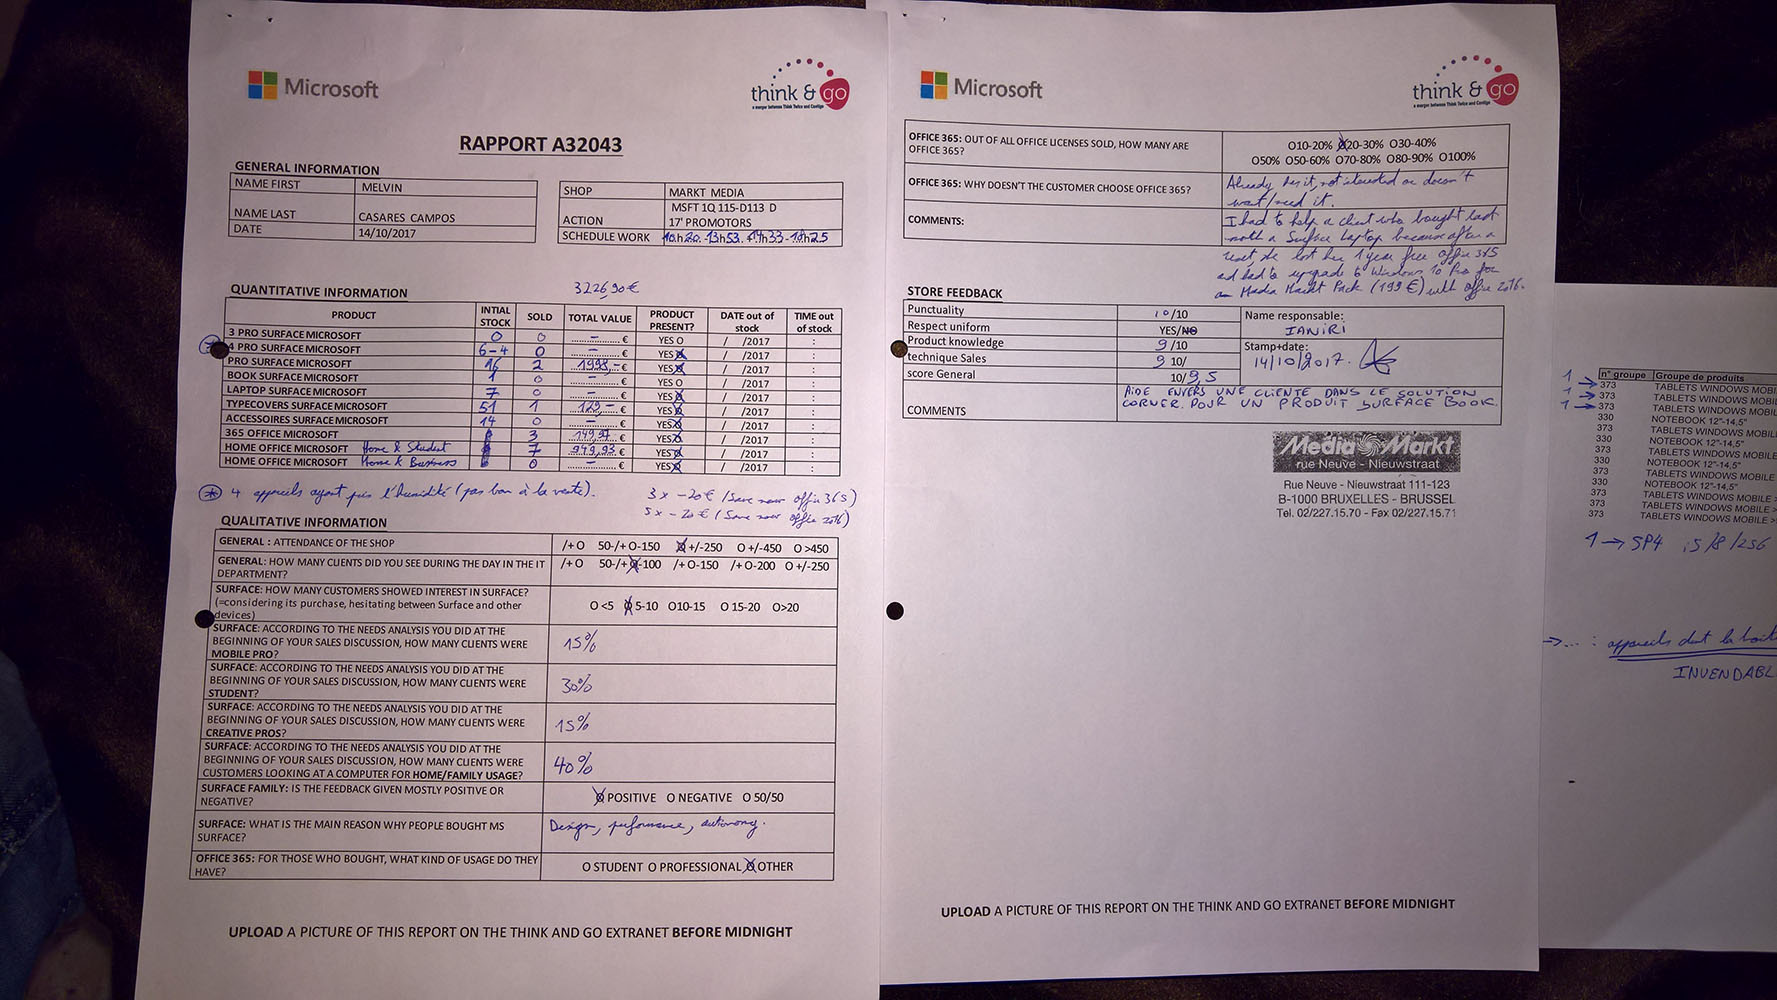 Microsoft
think & go
a merger between Think Twice and Contigo
RAPPORT A32043
GENERAL INFORMATION
NAME FIRST MELVIN
NAME LAST CASARES CAMPOS
DATE 14/10/2017
SHOP MARKT MEDIA
ACTION MSFT 1Q 115-D113 D
17' PROMOTORS
SCHEDULE WORK
3226,90€
QUANTITATIVE INFORMATION
PRODUCT INTIAL STOCK SOLD TOTAL VALUE PRODUCT PRESENT? DATE out of stock TIME out of stock
3 PRO SURFACE MICROSOFT 0 0 – € YES O / /2017 :
4 PRO SURFACE MICROSOFT 6-4 0 – € YES / /2017 :
PRO SURFACE MICROSOFT 16 2 1998,- € YES / /2017 :
BOOK SURFACE MICROSOFT 1 0 – € YES O / /2017 :
LAPTOP SURFACE MICROSOFT 7 0 – € YES / /2017 :
TYPECOVERS SURFACE MICROSOFT 51 1 129,- € YES / /2017 :
ACCESSOIRES SURFACE MICROSOFT 14 0 – € YES / /2017 :
365 OFFICE MICROSOFT 3 149,97 € YES / /2017 :
HOME OFFICE MICROSOFT Home & Student 7 949,93 € YES / /2017 :
HOME OFFICE MICROSOFT Home & Business 0 – € YES / /2017 :
* 4 appareils ayant pris l'humidité (pas bon à la vente).
3 x -20€ (Save now office 365)
5 x -20€ (Save now office 2016)
QUALITATIVE INFORMATION
GENERAL : ATTENDANCE OF THE SHOP /+ O 50-/+ O-150 O +/-250 O +/-450 O >450
GENERAL: HOW MANY CLIENTS DID YOU SEE DURING THE DAY IN THE IT
DEPARTMENT? /+ O 50-/+ O-100 /+ O-150 /+ O-200 O +/-250
SURFACE: HOW MANY CUSTOMERS SHOWED INTEREST IN SURFACE?
(=considering its purchase, hesitating between Surface and other
devices) O <5 O 5-10 O10-15 O 15-20 O>20
SURFACE: ACCORDING TO THE NEEDS ANALYSIS YOU DID AT THE
BEGINNING OF YOUR SALES DISCUSSION, HOW MANY CLIENTS WERE
MOBILE PRO? 15%
SURFACE: ACCORDING TO THE NEEDS ANALYSIS YOU DID AT THE
BEGINNING OF YOUR SALES DISCUSSION, HOW MANY CLIENTS WERE
STUDENT? 30%
SURFACE: ACCORDING TO THE NEEDS ANALYSIS YOU DID AT THE
BEGINNING OF YOUR SALES DISCUSSION, HOW MANY CLIENTS WERE
CREATIVE PROS? 15%
SURFACE: ACCORDING TO THE NEEDS ANALYSIS YOU DID AT THE
BEGINNING OF YOUR SALES DISCUSSION, HOW MANY CLIENTS WERE
CUSTOMERS LOOKING AT A COMPUTER FOR HOME/FAMILY USAGE? 40%
SURFACE FAMILY: IS THE FEEDBACK GIVEN MOSTLY POSITIVE OR
NEGATIVE? O POSITIVE O NEGATIVE O 50/50
SURFACE: WHAT IS THE MAIN REASON WHY PEOPLE BOUGHT MS
SURFACE? Design, performance, autonomy.
OFFICE 365: FOR THOSE WHO BOUGHT, WHAT KIND OF USAGE DO THEY
HAVE? O STUDENT O PROFESSIONAL O OTHER
UPLOAD A PICTURE OF THIS REPORT ON THE THINK AND GO EXTRANET BEFORE MIDNIGHT
Microsoft
think & go
a merger between Think Twice and Contigo
OFFICE 365: OUT OF ALL OFFICE LICENSES SOLD, HOW MANY ARE
OFFICE 365?
O10-20% O20-30% O30-40%
O50% O50-60% O70-80% O80-90% O100%
OFFICE 365: WHY DOESN'T THE CUSTOMER CHOOSE OFFICE 365?
Already has it, not interested or doesn't
want/need it.
COMMENTS:
I had to help a client who bought last
month a Surface Laptop because after a
reset, she lost her 1 year free office 365
and had to upgrade to Windows 10 Pro for
a Media Markt Pack (199 €) with office 2016.
STORE FEEDBACK
Punctuality 10/10
Respect uniform YES/NO
Product knowledge 9/10
technique Sales 9 10/
score General 10/9,5
Name responsable:
IANIRI
Stamp+date:
14/10/2017.
COMMENTS
AIDE ENVERS UNE CLIENTE DANS LE SOLUTION
CORNER. POUR UN PRODUIT SURFACE BOOK.
Media Markt
rue Neuve - Nieuwstraat
Rue Neuve - Nieuwstraat 111-123
B-1000 BRUXELLES - BRUSSEL
Tel. 02/227.15.70 - Fax 02/227.15.71
UPLOAD A PICTURE OF THIS REPORT ON THE THINK AND GO EXTRANET BEFORE MIDNIGHT
n° groupe Groupe de produits
1 → 373 TABLETS WINDOWS MOBI
1 → 373 TABLETS WINDOWS MOBIL
1 → 373 TABLETS WINDOWS MOBIL
330 NOTEBOOK 12"-14,5"
373 TABLETS WINDOWS MOBIL
330 NOTEBOOK 12"-14,5"
373 TABLETS WINDOWS MOBILE
330 NOTEBOOK 12"-14,5"
373 TABLETS WINDOWS MOBILE
330 NOTEBOOK 12"-14,5"
373 TABLETS WINDOWS MOBILE >
373 TABLETS WINDOWS MOBILE >
373 TABLETS WINDOWS MOBILE >
1 → SP4 i5/8/256
→ ... : appareils dont la boite
INVENDABL